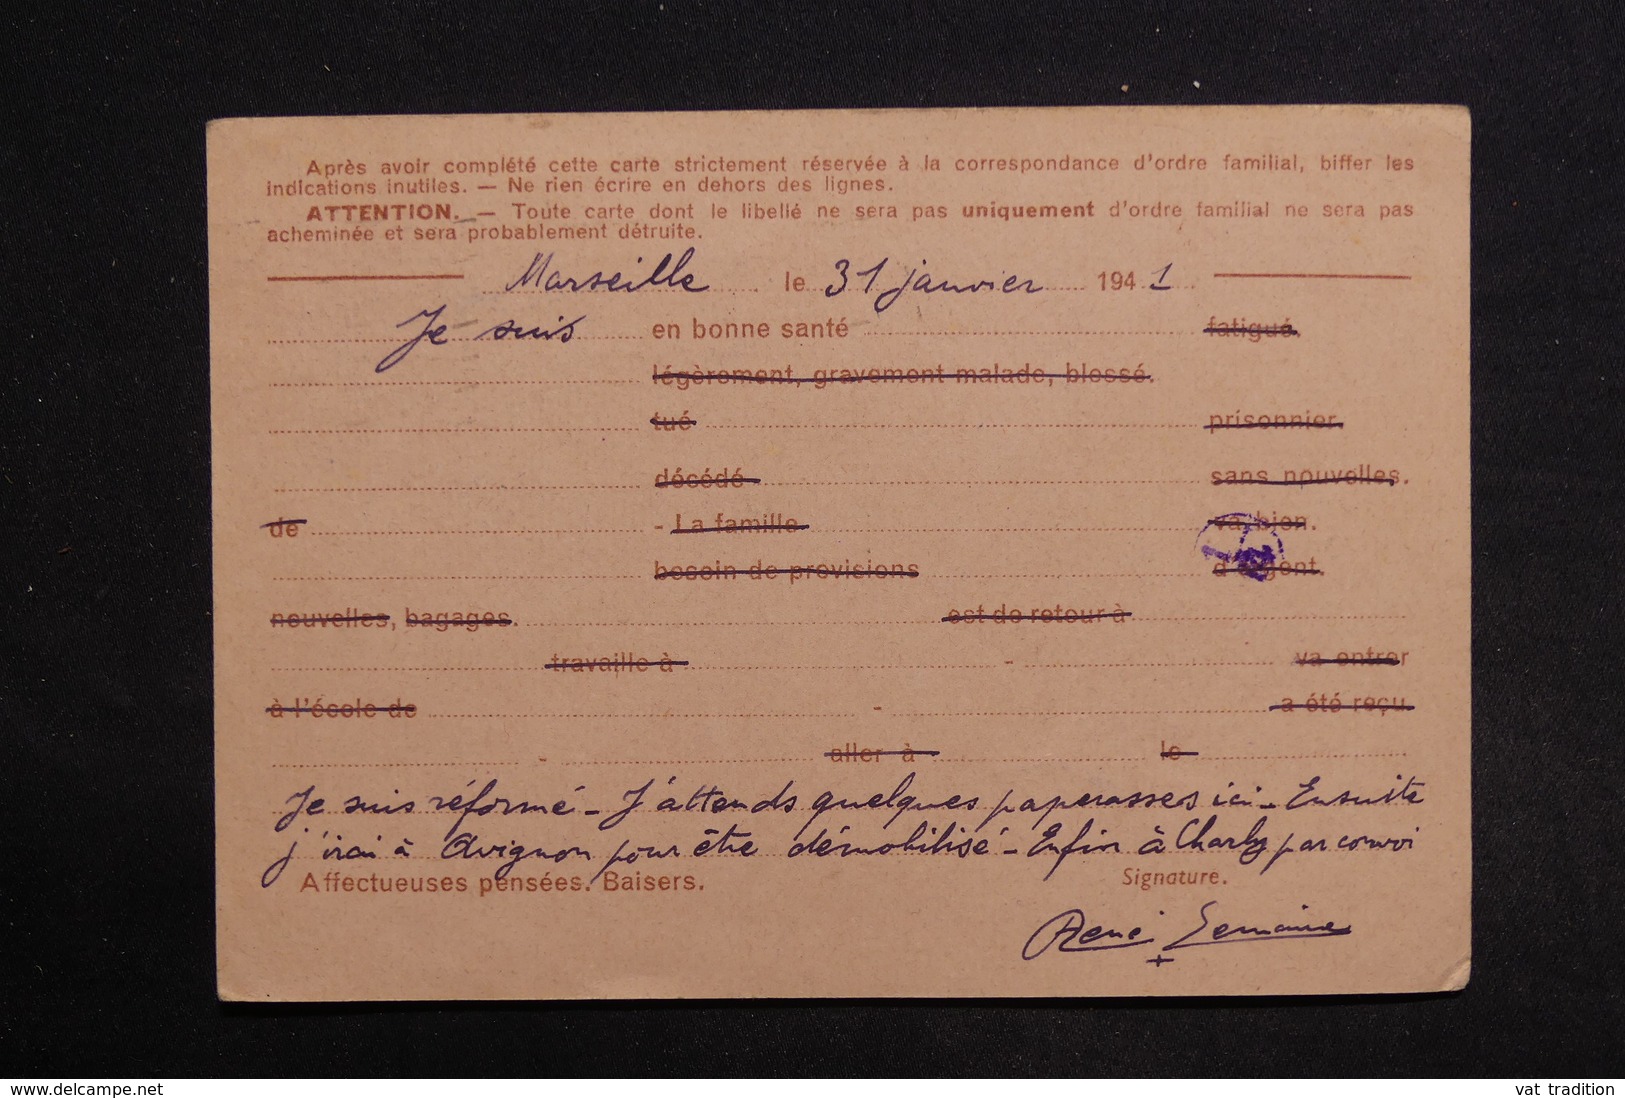 Après avoir complété cette carte strictement réservée à la correspondance d'ordre familial, biffer les
indications inutiles. — Ne rien écrire en dehors des lignes.
ATTENTION. — Toute carte dont le libellé ne sera pas uniquement d'ordre familial ne sera pas
acheminée et sera probablement détruite.
Marseille le 31 janvier 1941
Je suis en bonne santé fatigué.
légèrement, gravement malade, blessé.
tué prisonnier.
décédé sans nouvelles.
de - La famille va bien.
besoin de provisions d'argent.
nouvelles, bagages. est de retour à
travaille à - va entrer
à l'école de - a été reçu.
- aller à le
Je suis réformé - J'attends quelques paperasses ici - Ensuite
j'irai à Avignon pour être démobilisé - Enfin à Charly par convoi
Affectueuses pensées. Baisers. Signature.
René
www.delcampe.net vat tradition